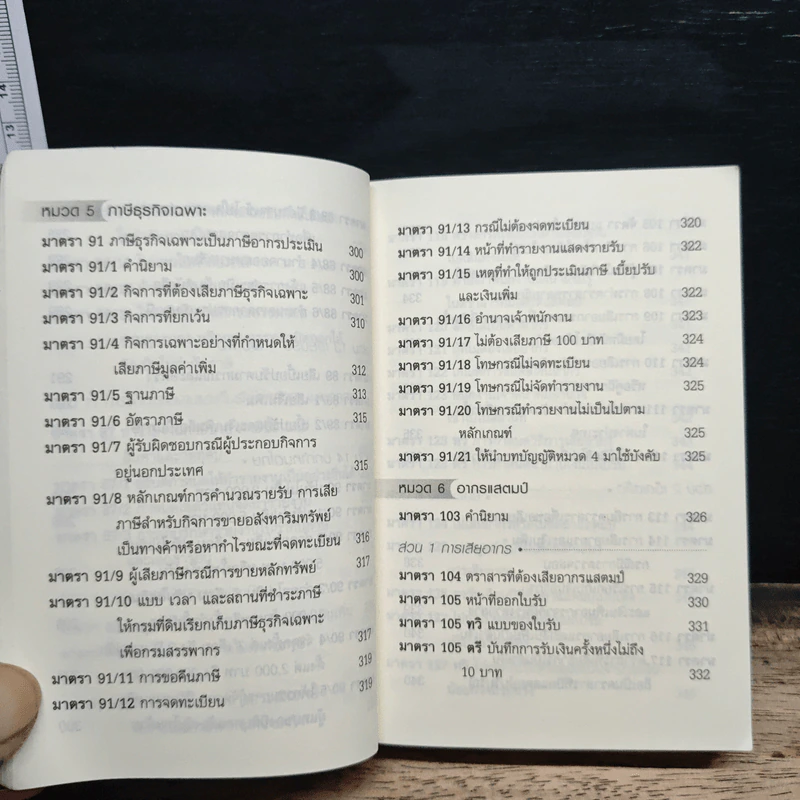 14
13
หมวด 5 ภาษีธุรกิจเฉพาะ
มาตรา 91 ภาษีธุรกิจเฉพาะเป็นภาษีอากรประเมิน 300
มาตรา 91/1 คำนิยาม 300
มาตรา 91/2 กิจการที่ต้องเสียภาษีธุรกิจเฉพาะ 301
มาตรา 91/3 กิจการที่ยกเว้น 310
มาตรา 91/4 กิจการเฉพาะอย่างที่กำหนดให้
เสียภาษีมูลค่าเพิ่ม 312
มาตรา 91/5 ฐานภาษี 313
มาตรา 91/6 อัตราภาษี 315
มาตรา 91/7 ผู้รับผิดชอบกรณีผู้ประกอบกิจการ
อยู่นอกประเทศ 315
มาตรา 91/8 หลักเกณฑ์การคำนวณรายรับ การเสีย
ภาษีสำหรับกิจการขายอสังหาริมทรัพย์
เป็นทางค้าหรือหากำไรขณะที่จดทะเบียน 316
มาตรา 91/9 ผู้เสียภาษีกรณีการขายหลักทรัพย์ 317
มาตรา 91/10 แบบ เวลา และสถานที่ชำระภาษี
ให้กรมที่ดินเรียกเก็บภาษีธุรกิจเฉพาะ
เพื่อกรมสรรพากร 317
มาตรา 91/11 การขอคืนภาษี 319
มาตรา 91/12 การจดทะเบียน 319
มาตรา 91/13 กรณีไม่ต้องจดทะเบียน 320
มาตรา 91/14 หน้าที่ทำรายงานแสดงรายรับ 322
มาตรา 91/15 เหตุที่ทำให้ถูกประเมินภาษี เบี้ยปรับ
และเงินเพิ่ม 322
มาตรา 91/16 อำนาจเจ้าพนักงาน 323
มาตรา 91/17 ไม่ต้องเสียภาษี 100 บาท 324
มาตรา 91/18 โทษกรณีไม่จดทะเบียน 324
มาตรา 91/19 โทษกรณีไม่จัดทำรายงาน 325
มาตรา 91/20 โทษกรณีทำรายงานไม่เป็นไปตาม
หลักเกณฑ์ 325
มาตรา 91/21 ให้นำบทบัญญัติหมวด 4 มาใช้บังคับ 325
หมวด 6 อากรแสตมป์
มาตรา 103 คำนิยาม 326
ส่วน 1 การเสียอากร •
มาตรา 104 ตราสารที่ต้องเสียอากรแสตมป์ 329
มาตรา 105 หน้าที่ออกใบรับ 330
มาตรา 105 ทวิ แบบของใบรับ 331
มาตรา 105 ตรี บันทึกการรับเงินครั้งหนึ่งไม่ถึง
10 บาท 332